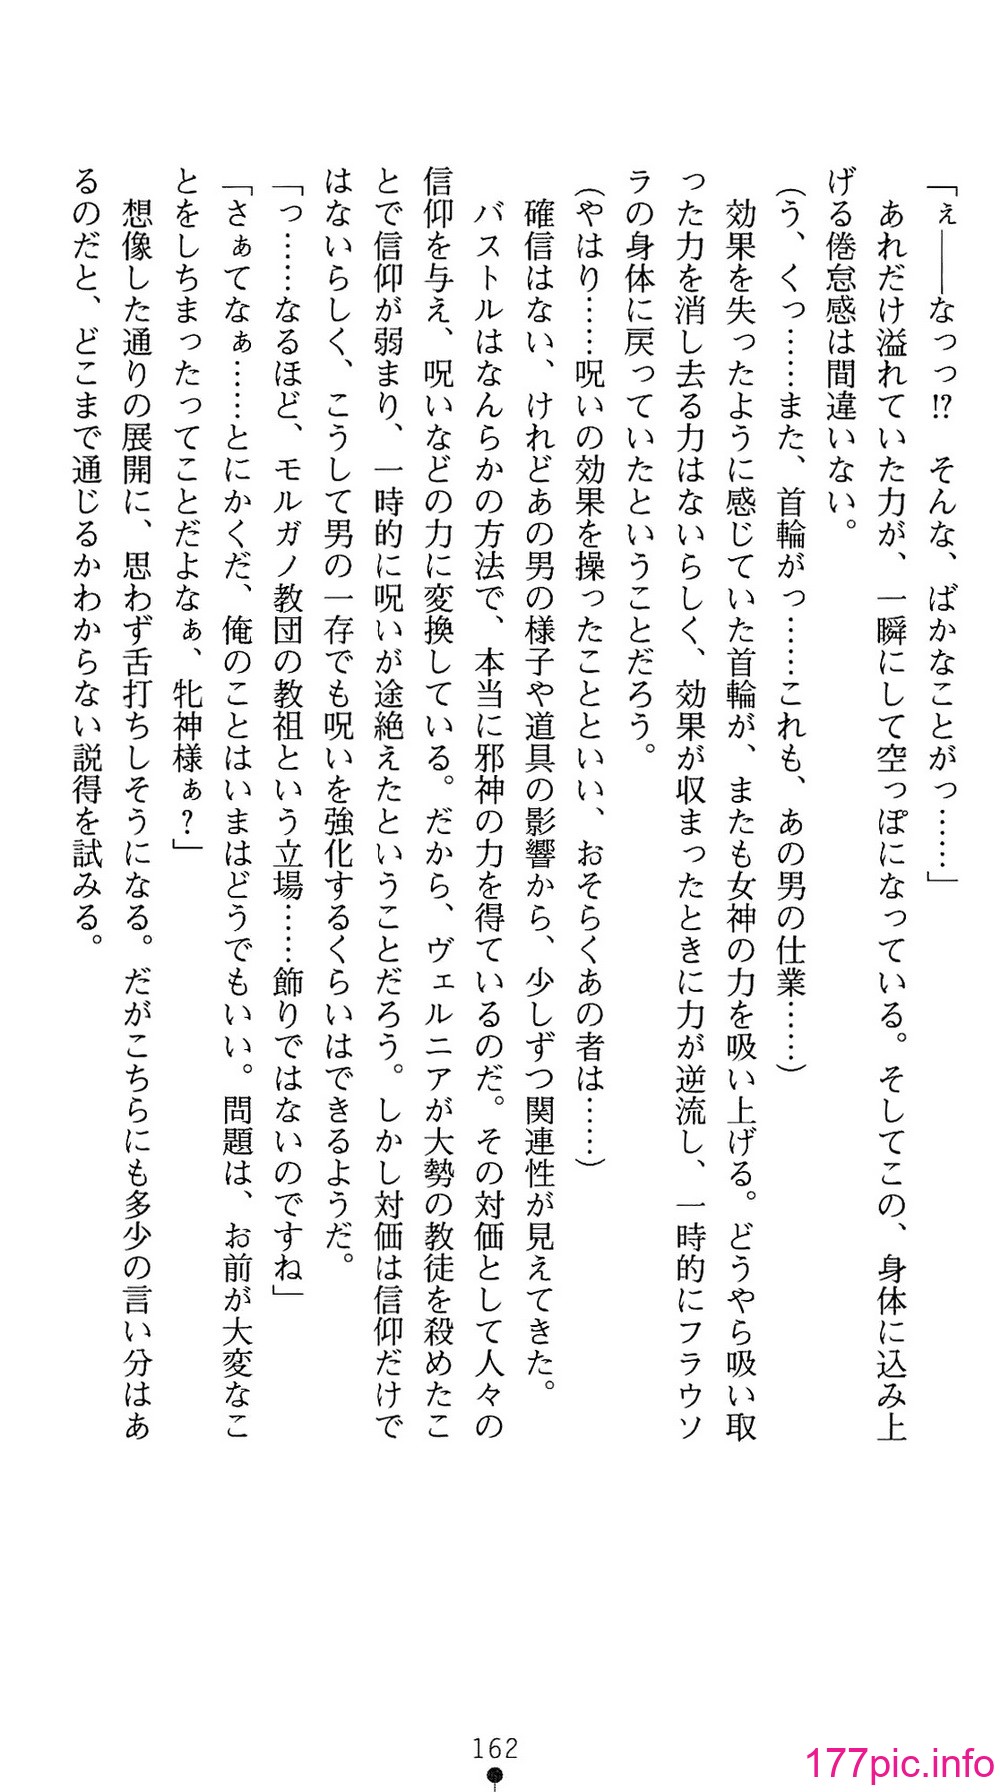 「ぇ――なっっ!?　そんな、ばかなことがっ……」
　あれだけ溢れていた力が、一瞬にして空っぽになっている。そしてこの、身体に込み上
げる倦怠感は間違いない。
（う、くっ……また、首輪がっ……これも、あの男の仕業……）
　効果を失ったように感じていた首輪が、またも女神の力を吸い上げる。どうやら吸い取
った力を消し去る力はないらしく、効果が収まったときに力が逆流し、一時的にフラウソ
ラの身体に戻っていたということだろう。
（やはり……呪いの効果を操ったことといい、おそらくあの者は……）
　確信はない、けれどあの男の様子や道具の影響から、少しずつ関連性が見えてきた。
　バストルはなんらかの方法で、本当に邪神の力を得ているのだ。その対価として人々の
信仰を与え、呪いなどの力に変換している。だから、ヴェルニアが大勢の教徒を殺めたこ
とで信仰が弱まり、一時的に呪いが途絶えたということだろう。しかし対価は信仰だけで
はないらしく、こうして男の一存でも呪いを強化するくらいはできるようだ。
「っ……なるほど、モルガノ教団の教祖という立場……飾りではないのですね」
「さぁてなぁ……とにかくだ、俺のことはいまはどうでもいい。問題は、お前が大変なこ
とをしちまったってことだよなぁ、牝神様ぁ？」
　想像した通りの展開に、思わず舌打ちしそうになる。だがこちらにも多少の言い分はあ
るのだと、どこまで通じるかわからない説得を試みる。
162
177pic.info